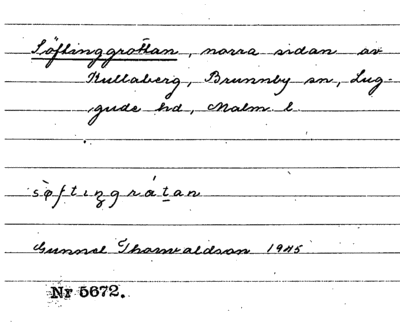 Söftinggrottan, norra sidan av
Kullaberg, Brunnby sn, Lug-
gude hd, Malm l.
sø̀ftiŋgrátan
Gunnel Thorvaldson 1945
Nr 5672.